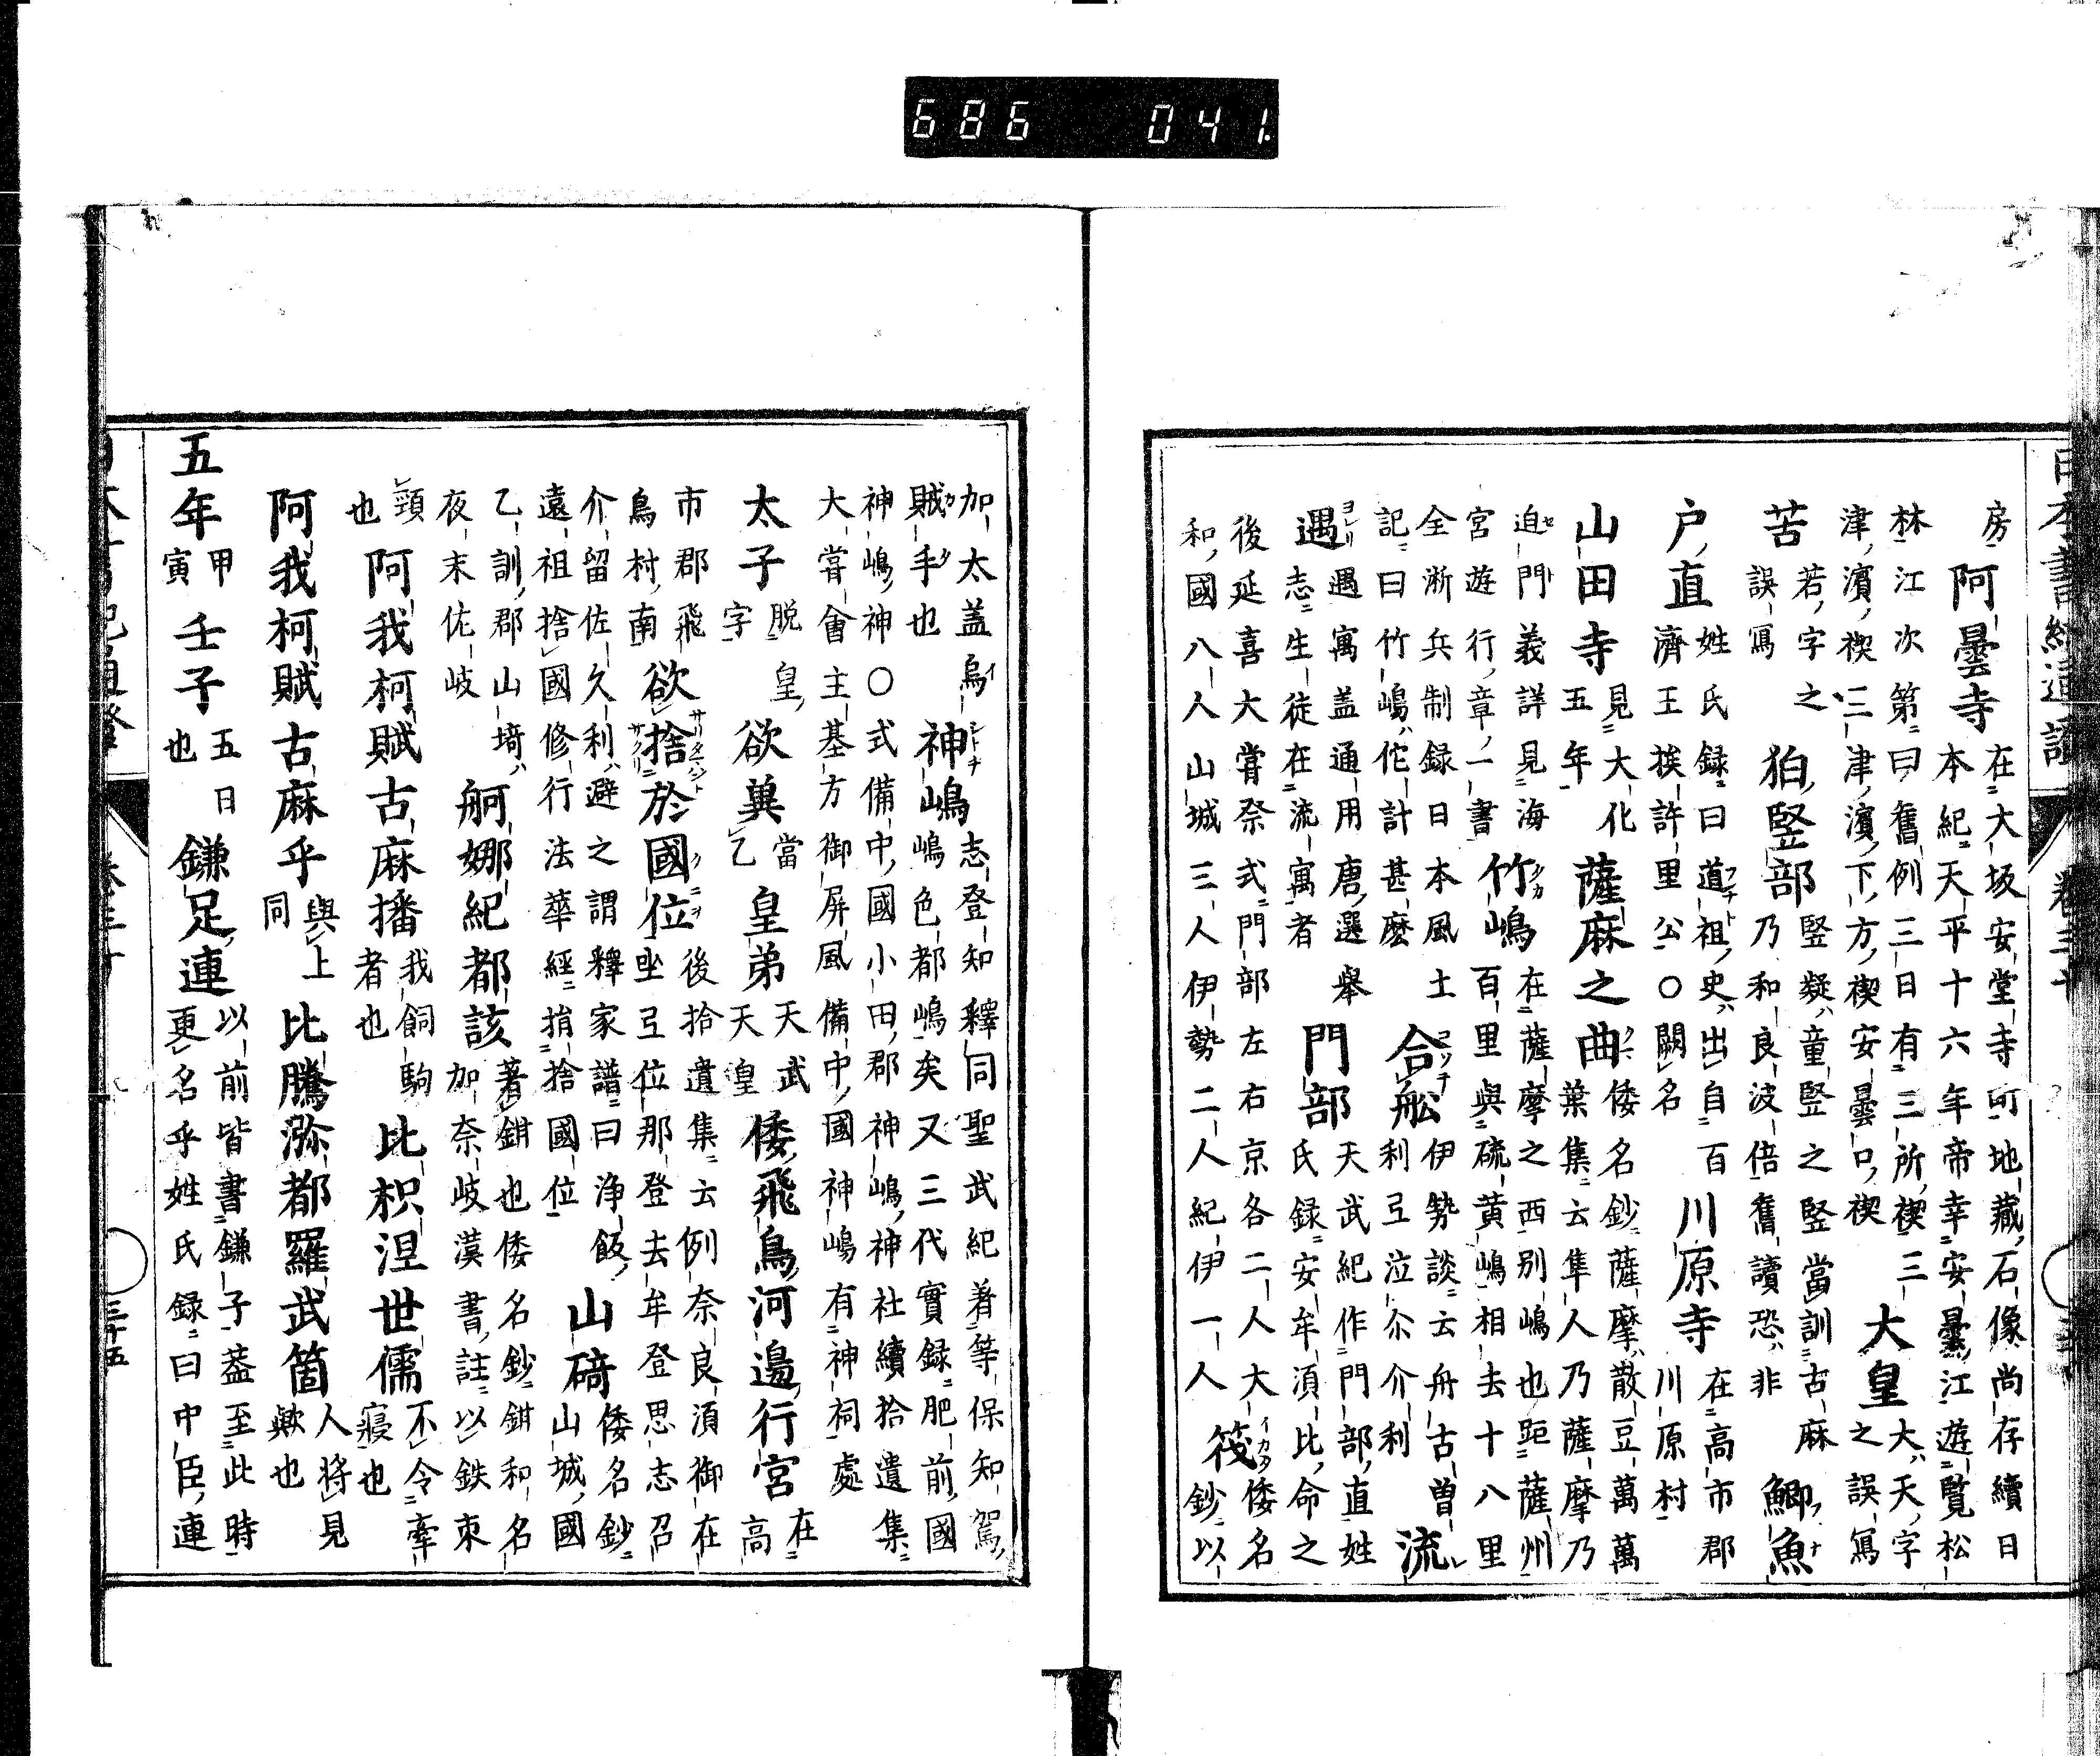 日本書紀通證 卷三十
房阿曇寺在大坂安堂寺町地藏石像尚存續日本紀天平十六年帝幸安曇江遊覧松
林江次第曰舊例三日有三所禊三津濱禊三津濱下方禊安曇口禊大皇大天字之誤寫
苦若字之誤寫狛竪部竪疑童竪之竪當訓古麻乃和良波倍舊讀恐非鯽魚
戸直姓氏録曰道祖史出自百濟王挨許里公〇闕名川原寺在高市郡川原村
山田寺見大化五年薩麻之曲倭名鈔薩摩散豆萬萬葉集云隼人乃薩摩乃
迫門義詳見海宮遊行章一書竹嶋在薩摩之西别嶋也距薩州百里與硫黄嶋相去十八里
全淅兵制録日本風土記曰竹嶋佗計甚麼合舩伊勢談云舟古曽利弖泣尓介利流
遇遇寓盖通用唐選舉志生徒在流寓者門部天武紀作門部直姓氏録安牟須比命之
後延喜大嘗祭式門部左右京各二人大和國八人山城三人伊勢二人紀伊一人筏倭名鈔以
加太盖烏賊手也神嶋志登知釋同聖武紀著等保知駕嶋色都嶋矣又三代實録肥前國
神嶋神〇式備中國小田郡神嶋神社續拾遺集大嘗會主基方御屏風備中國神嶋有神祠處
太子脱皇字欲兾當乙皇弟天武天皇倭飛鳥河邊行宮在高
市郡飛鳥村南欲捨於國位後拾遺集云例奈良須御在坐弖位那登去牟登思志召
介留佐久利避之謂釋家譜曰浄飯遠祖捨國修行法華經捐捨國位山碕倭名鈔山城國
乙訓郡山埼夜末佐岐舸娜紀都該著鉗也倭名鈔鉗和名加奈岐漢書註以鉄束
頸也阿我柯賦古麻播我飼駒者也比枳涅世儒不令牽寢也
阿我柯賦古麻乎與上同比騰瀰都羅武箇人将見歟也
五年甲寅壬子五日也鎌足連以前皆書鎌子盖至此時更名乎姓氏録曰中臣連
三十五
686 041